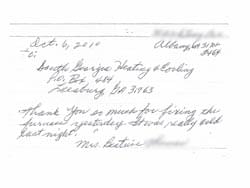 Oct. 6, 2010
Albany, GA
To:
South Georgia Heating & Cooling
P.O. Box 484
Leesburg GA 31763
Thank you so much for fixing the
furnace yesterday. It was really cold
last night.
Mrs. Beatrice